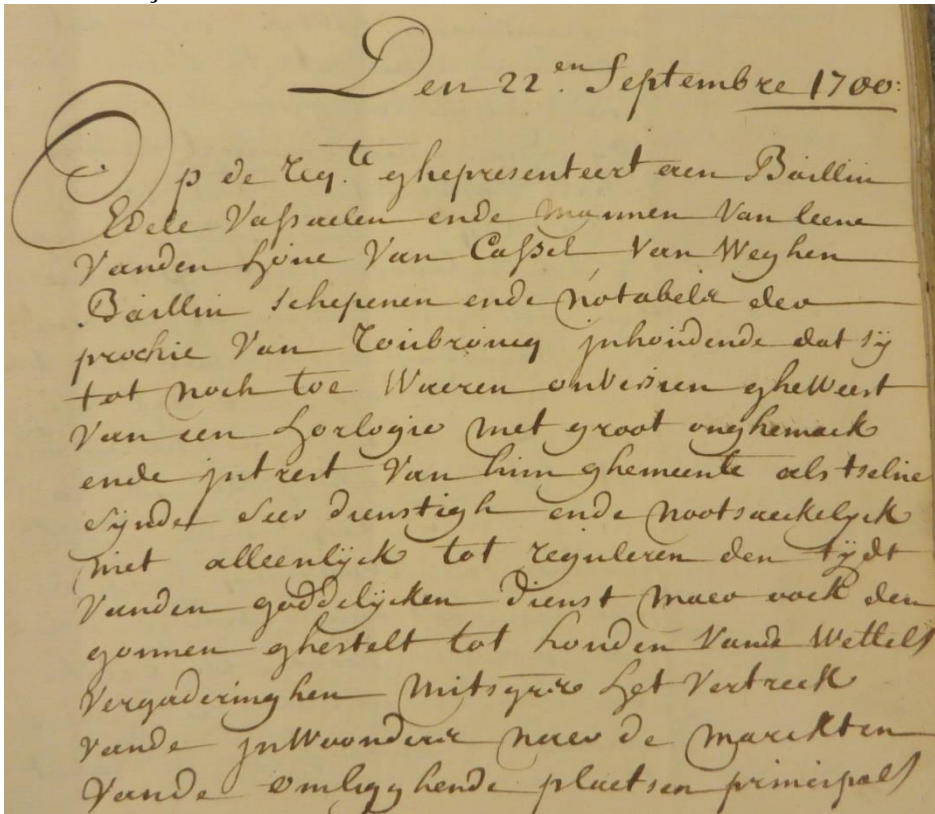 Den 22.en Septembre 1700:
Op de Reqte. ghepresenteert aen Bailliu
Edele Vassaelen ende mannen Van leene
Vanden Hove Van Cassel Van Weghen
Bailliu Schepenen ende notabele der
prochie Van Roubroucq jnhoudende dat sij
tot noch toe Waeren onversien gheWeest
Van een horlogie met groot onghemack
ende jntrest Van hun ghemeente als tselve
Synde seer dienstigh ende nootsaeckelyck
niet alleenlijck tot reguleren den tijdt
Vanden goddelijcken dienst maer oock den
gonnen ghestelt tot houden Vande Wettel
Vergaderinghen mitsgrs het Vertreck
vande jnWoonders naer de marckten
Vande omligghende plaetsen principal